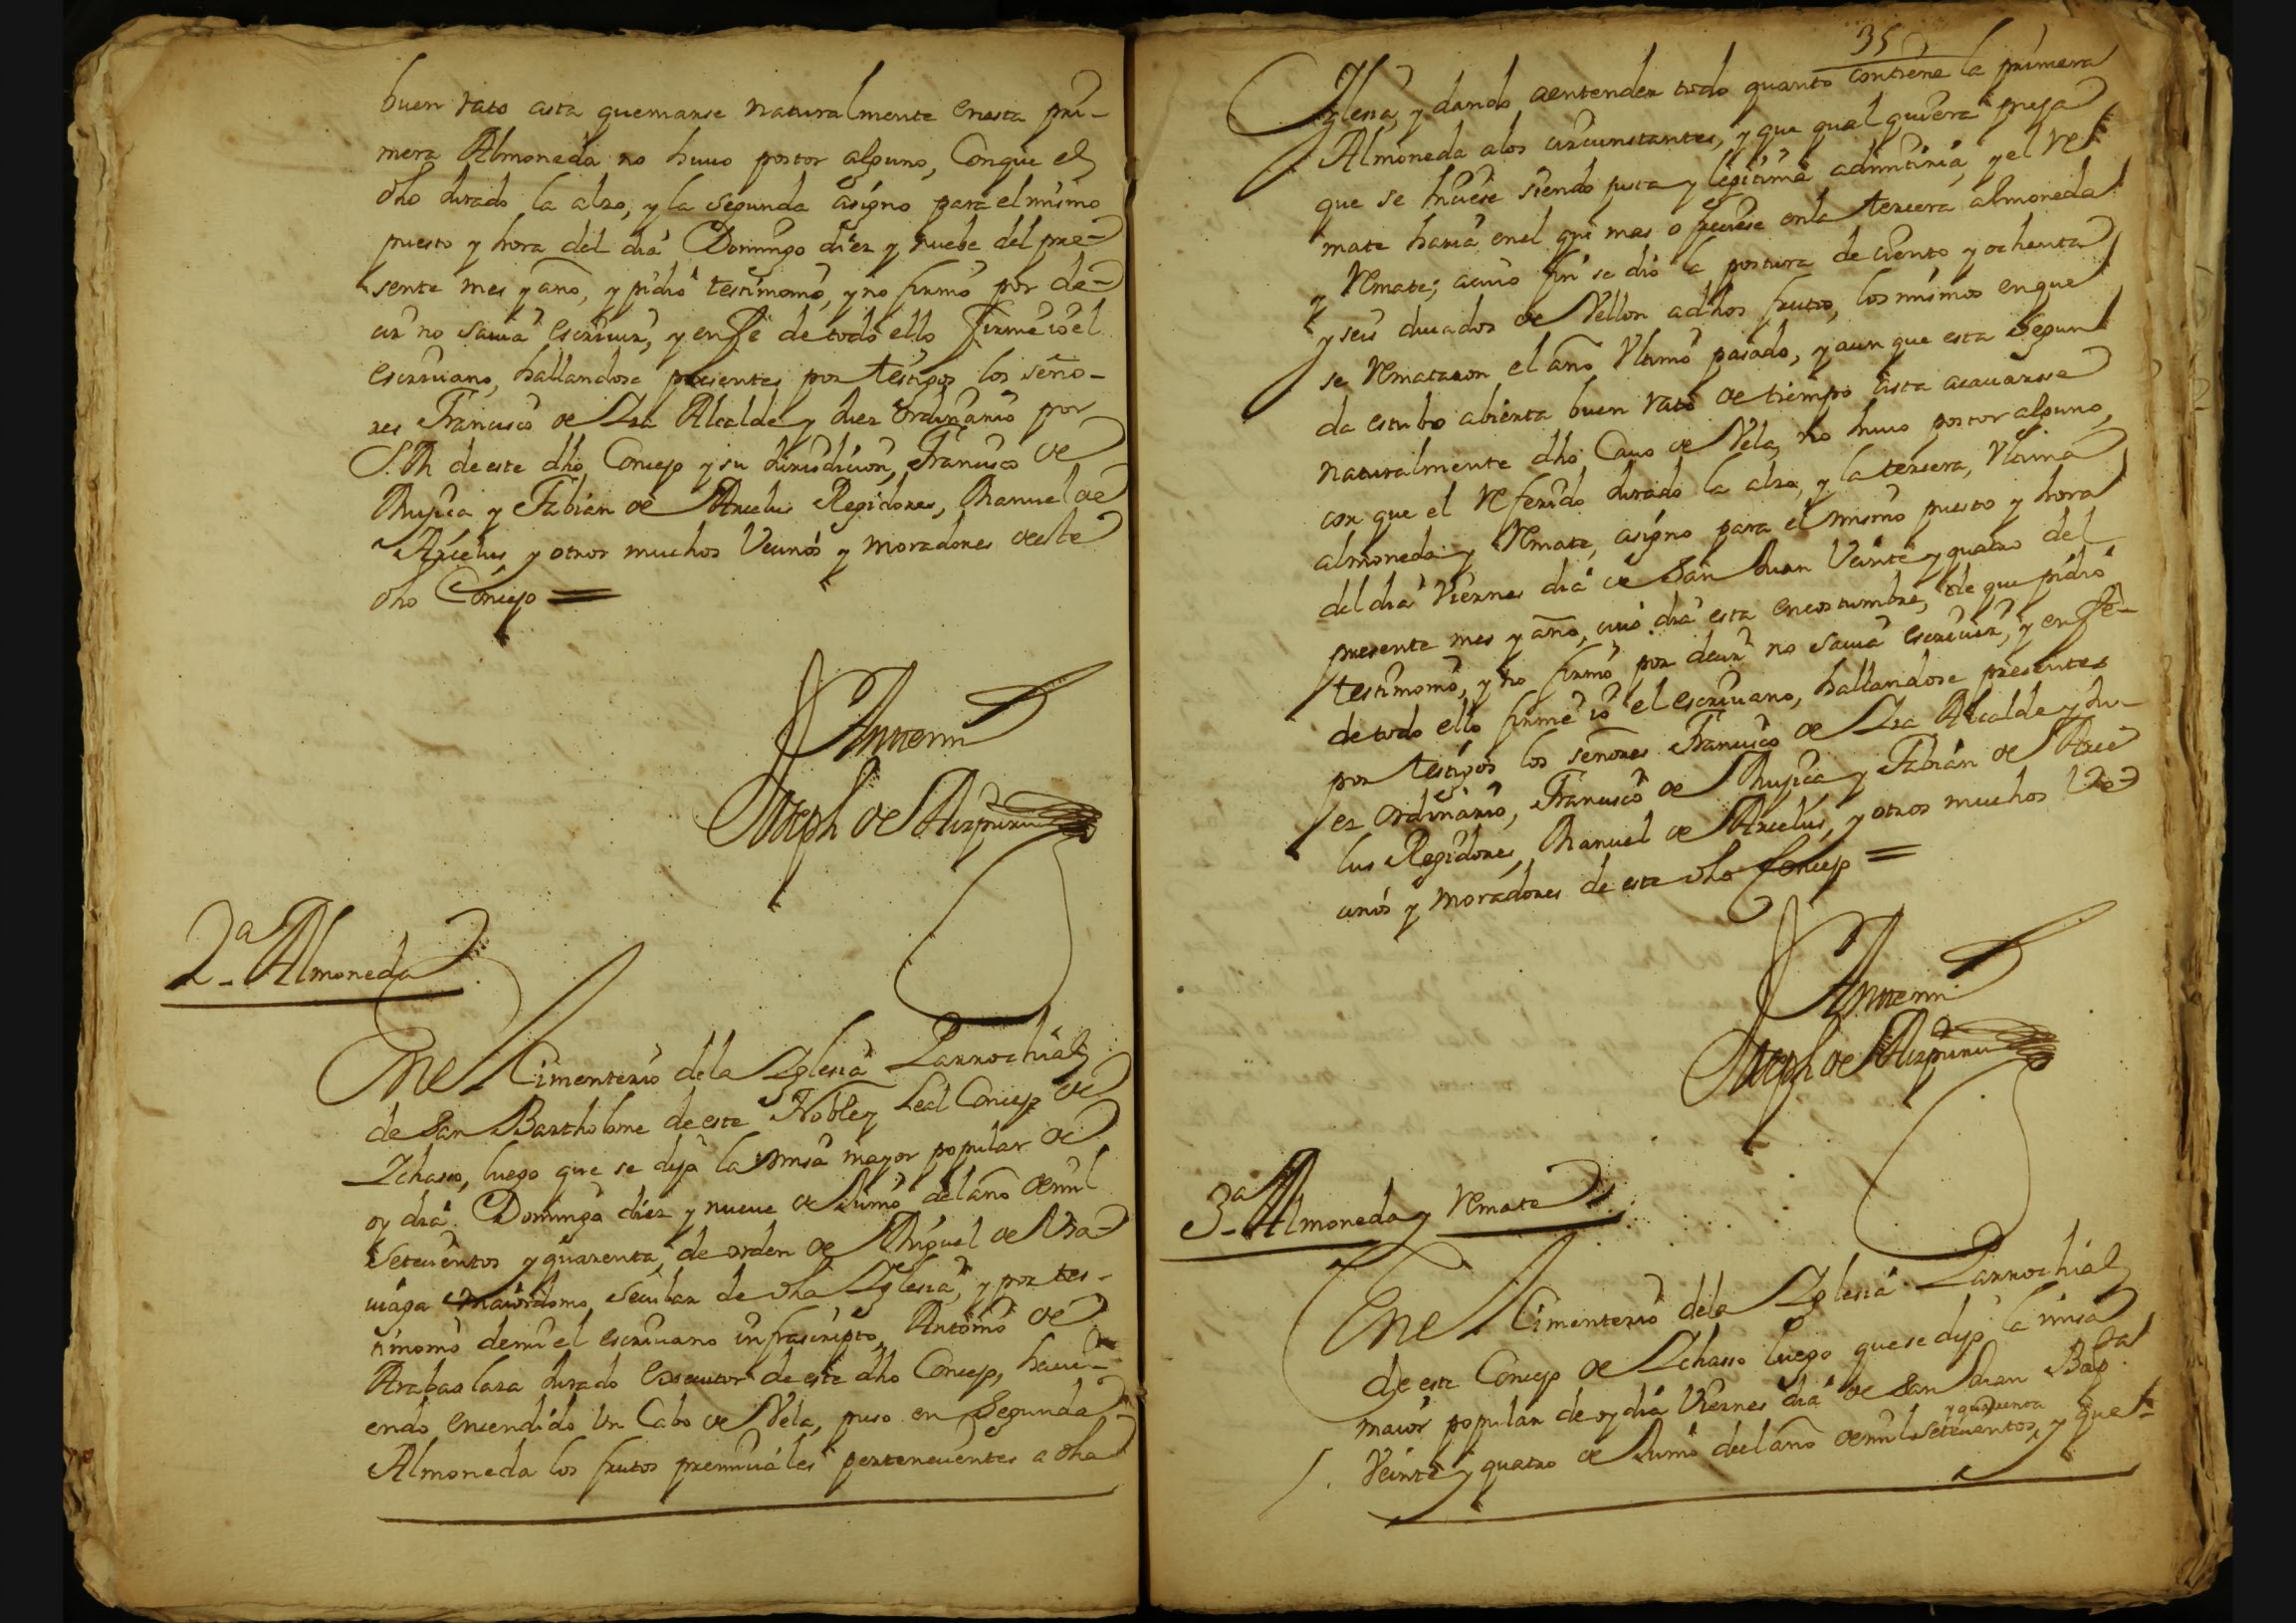 buen rato asta quemarse naturalmente enesta pri-
mera Almoneda no huuo postor alguno, Conque el
dho Jurado la alzo, y la Segunda asigno para el mismo
puesto y hora del dia Domingo diez y nuebe del pre-
sente mes y año, y pidio testimonio, y no firmo por de-
cir no sauia escriuir, y en fe de todo ello firme io el
escriuano, hallandose presentes por testigos los seño-
res Francisco de Lza Alcalde y Juez ordinario por
S. M. de este dho Concejo y su Jurisdicion, Francisco de
Mujica y Fabian de Arcelus Regidores, Manuel de
Arcelus, y otros muchos Vecinos y moradores deste
dho Concejo =
Antemi
Joseph de Aizpuru
2ª Almoneda
Enel Cimenterio dela Iglesia Parrochial
de San Bartholome de este Noble y Leal Concejo de
Ichasso, luego que se dijo la misa mayor popular de
oy dia Domingo diez y nueue de Junio del año de mil
Setecientos y quarenta, de orden de Miguel de
maiordomo Secular de dha Iglesia, y por tes-
timonio demi el escriuano infrascripto, Antonio de
Arabaolaza Jurado Executor de este dho Concejo, haui-
endo encendido Un Cabo de Vela, puso en Segunda
Almoneda los frutos premiciales pertenecientes a dha
35
Iglesia, y dando aentender todo quanto contiene la primera
Almoneda alos circunstantes, y que qual quiera puja
que se hiciese siendo justa y legitima admitiria, y el re-
mate haria enel que mas ofreciese enla tercera almoneda
y remate; acuio fin se dio la postura de ciento y ochenta
y seis ducados de Vellon adhos frutos, los mismos enque
se remataron el año Ultimo pasado, y aun que esta Segun
da estubo abierta buen rato de tiempo asta acauarse
naturalmente dho Cauo de Vela, no huuo postor alguno,
con que el referido Jurado la alzo, y la tercera, Ultima
almoneda y remate, asigno para el mismo puesto y hora
del dia Viernes dia de San Juan Veinte y quatro del
presente mes y año, cuio dia esta encostumbre, de que pidio
testimonio, y no firmo por decir no sauia escriuir, y en fe
de todo ello firme io el escriuano, hallandose presentes
por testigos los señores Francisco de Lza Alcalde y Ju-
ez ordinario, Francisco de Mujica y Fabian de Arce
lus Regidores, Manuel de Arcelus, y otros muchos Ve-
cinos y moradores de este dho Concejo =
Antemi
Joseph de Aizpuru
3ª Almoneda y remate
Enel Cimenterio dela Iglesia Parrochial
de este Concejo de Ichasso luego que se dijo la misa
maior popular de oy dia Viernes dia de San Juan Bapta
Veinte y quatro de Junio del año de mil Setecientos y quarenta, y que